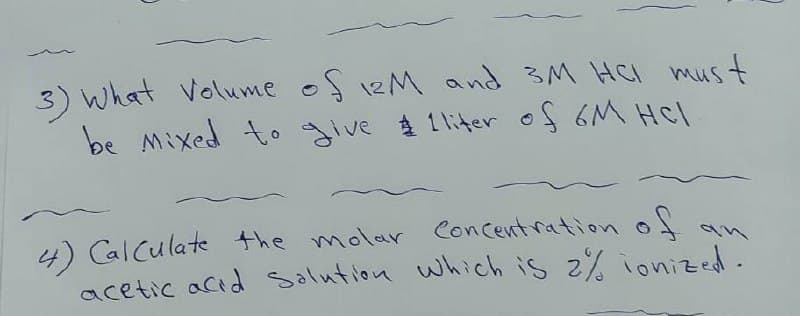 3) What Volume of 12M and 3M HCl must
be Mixed to give 1 liter of 6M HCl
4) Calculate the molar Concentration of an
acetic acid Solution which is 2% ionized.